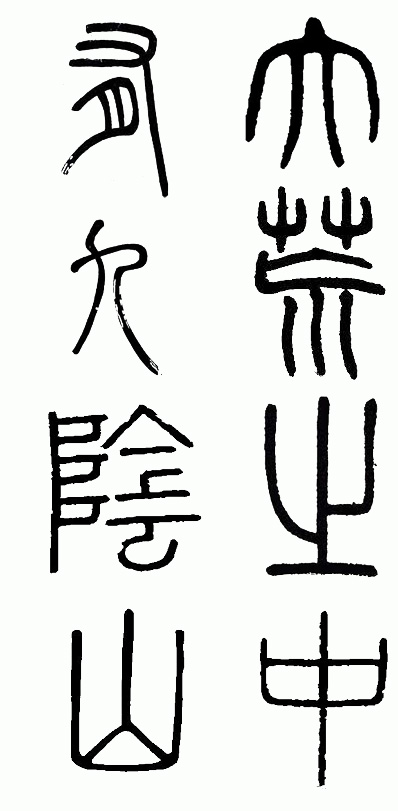 大荒之中
有九陰山